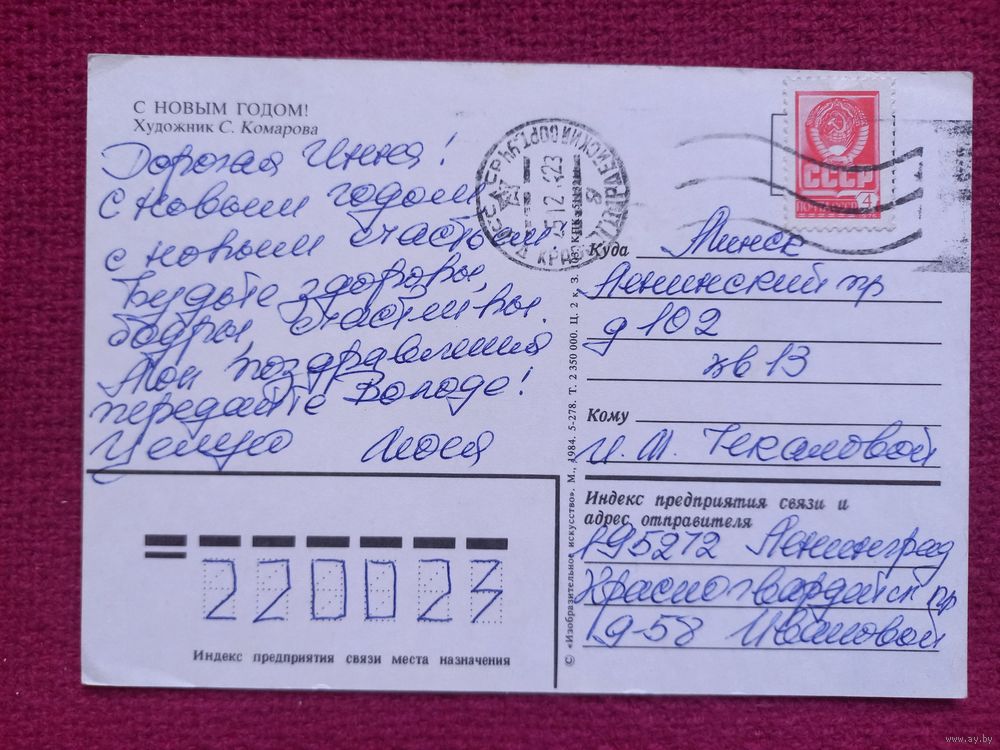 С НОВЫМ ГОДОМ!
Художник С. Комарова
Дорогая Инна!
С новым годом
с новым счастьем.
Будьте здоровы,
бодры, счастливы.
Мои поздравления
передайте Володе!
Целую
СССР
ПОЧТА СССР 4
Куда Минск
Ленинский пр
д 102
кв 13
Кому
И. М. Чекаловой
Индекс предприятия связи и
адрес отправителя
195272 Ленинград
Красногвардейск пр
19-58 Ивановой
220023
Индекс предприятия связи места назначения
© «Изобразительное искусство». М., 1984. 5-278. Т. 2 350 000. Ц. 2 к. З.
www.ay.by